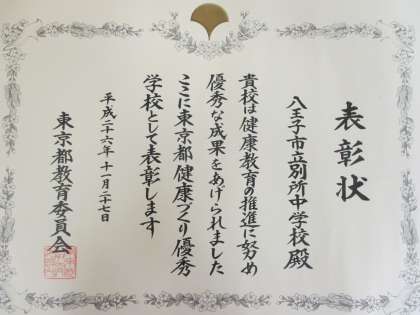 表彰状
八王子市立別所中学校殿
貴校は健康教育の推進に努め
優秀な成果をあげられました
ここに東京都健康づくり優秀
学校として表彰します
平成二十六年十一月二十七日
東京都教育委員会